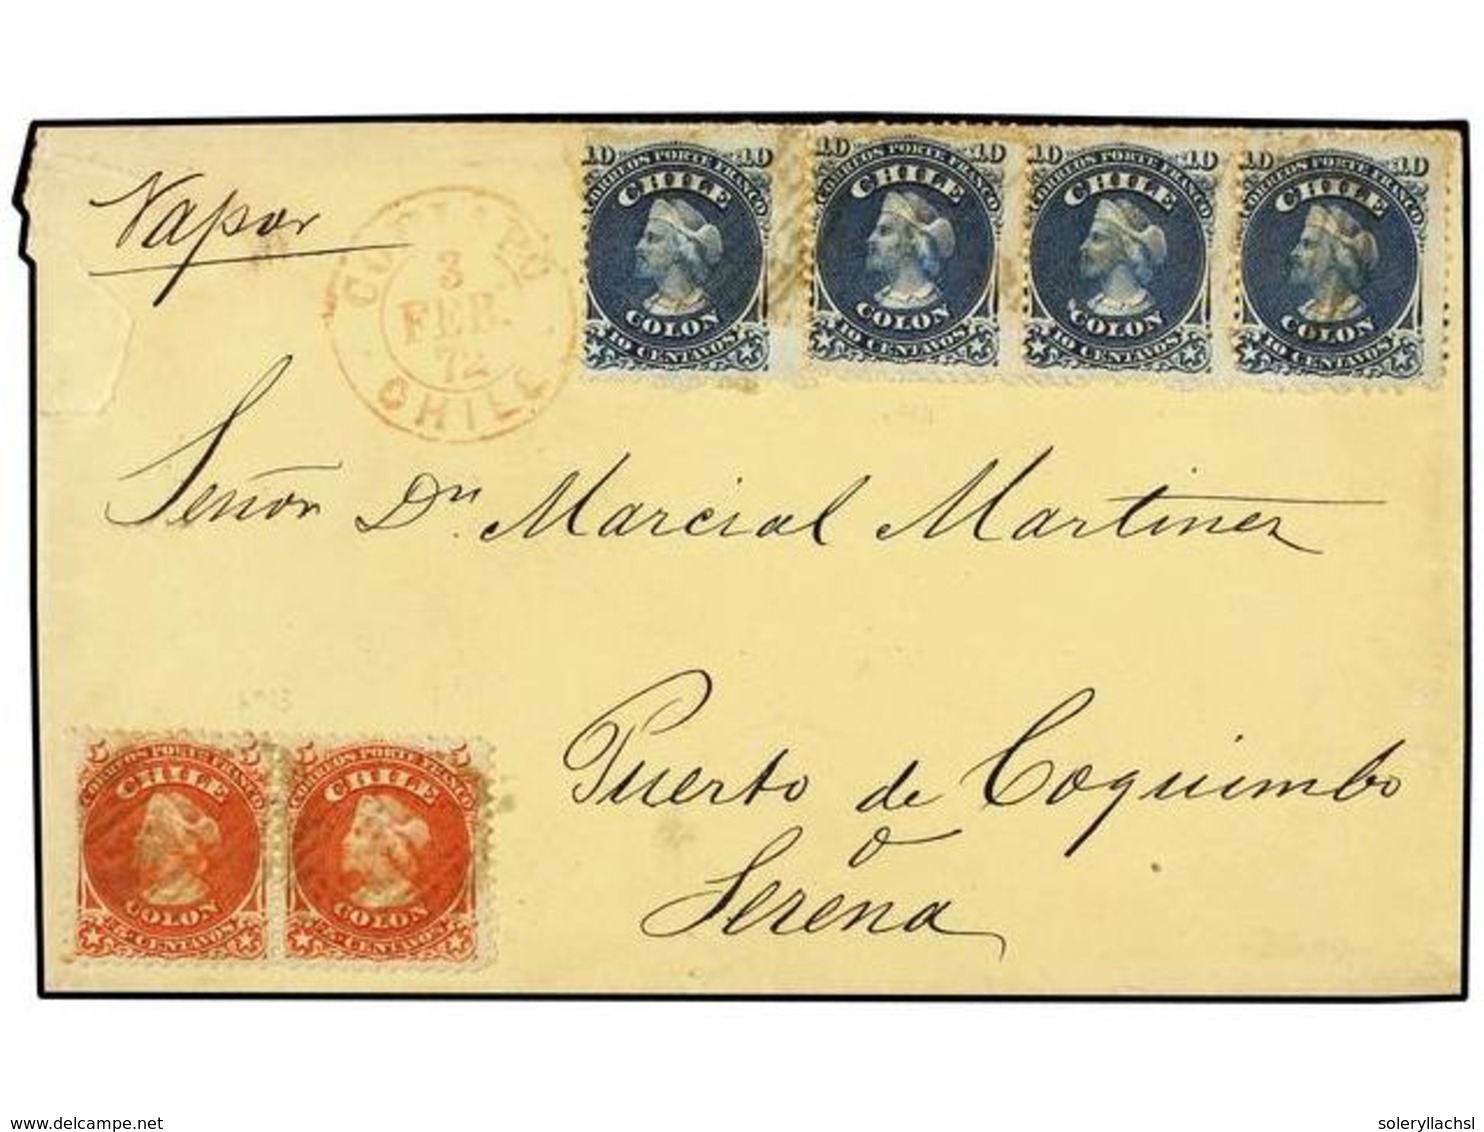 10 10 10 10 10 10 10 10
CORREOS PORTE FRANCO CORREOS PORTE FRANCO CORREOS PORTE FRANCO CORREOS PORTE FRANCO
CHILE CHILE CHILE CHILE
COLON COLON COLON COLON
10 CENTAVOS 10 CENTAVOS 10 CENTAVOS 10 CENTAVOS
Vapor
3
FEB.
72
CHILE
Señor Dn. Marcial Martinez
Puerto de Coquimbo
o
Serena
5 5 5 5
CORREOS PORTE FRANCO CORREOS PORTE FRANCO
CHILE CHILE
COLON COLON
5 CENTAVOS 5 CENTAVOS
www.delcampe.net
soleryllachsl